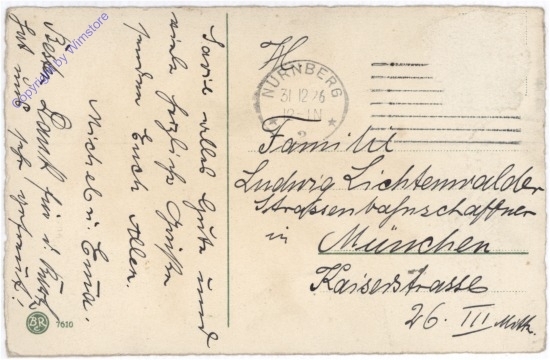 Sowie alles Gute und
viele herzliche Grüße
senden Euch Allen.
Michel u. Emma.
Besten Dank für d. Karte
hat uns sehr gefreut!
NÜRNBERG
31.12.26
2
Familie
Ludwig Lichtenwalder
Strassenbahnschaffner
in München
Kaiserstrasse
26. III
BR
7610
Copyright by Wimstore